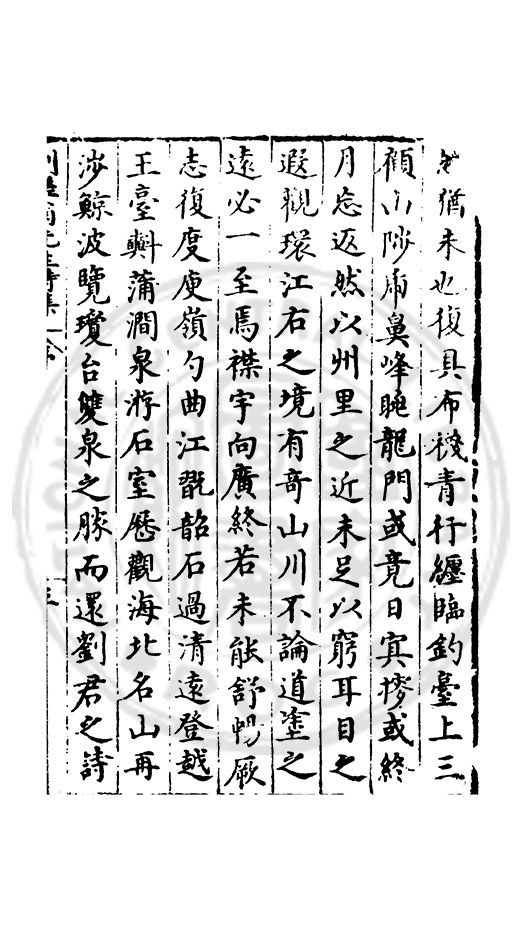 猶未也復具布襪青行纏臨釣臺上三
顧山陟甫鼻峰睨龍門或竟日冥搜或終
月忘返然以州里之近未足以窮耳目之
遐觀環江右之境有奇山川不論道塗之
遠必一至焉襟宇向廣終若未能舒暢厥
志復度庾嶺勺曲江翫韶石過清遠登越
王臺㪺蒲澗泉游石室歷觀海北名山再
涉鯨波覽瓊台雙泉之勝而還劉君之詩